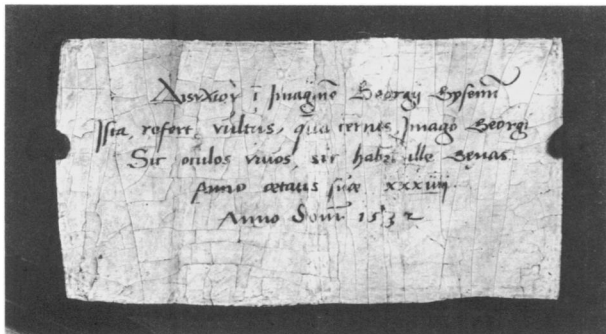 Διστιχον ī Imaginē Georgij Gysenij
Ista refert vultus, quā cernis, Imago Georgi
Sic oculos viuos, sic habet ille Genas
Anno ætatis suæ xxxiiij
Anno dom̄ 1532